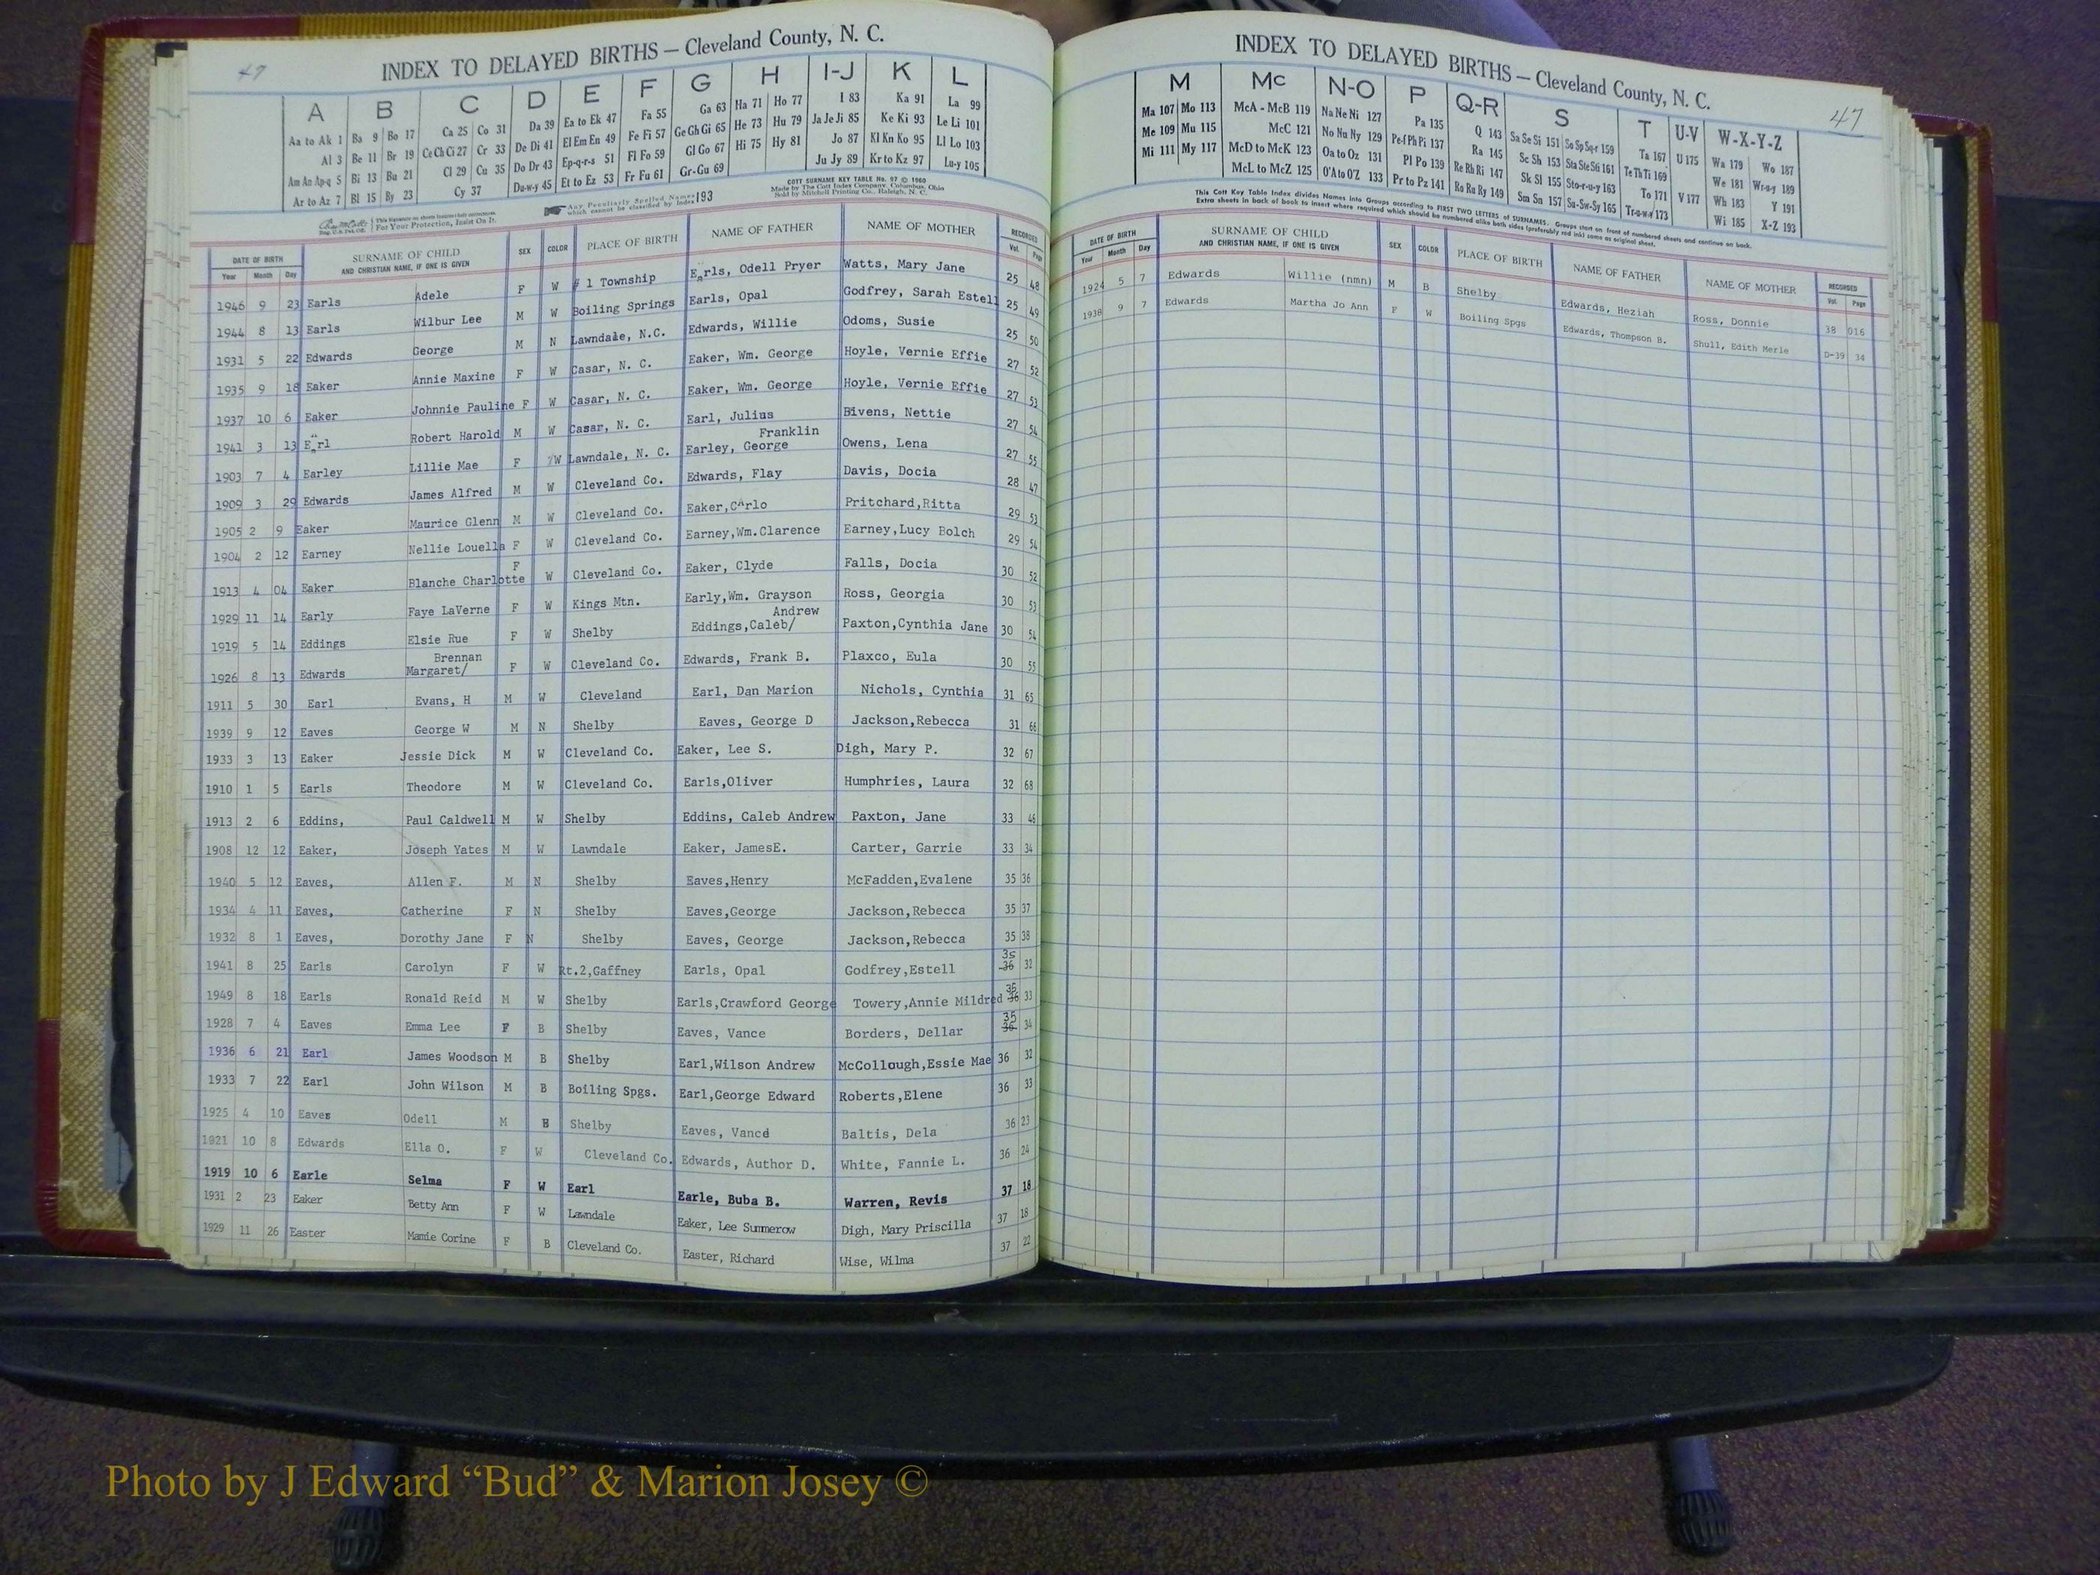 47
INDEX TO DELAYED BIRTHS — Cleveland County, N. C.
A B C D E F G H I-J K L
Aa to Ak 1 Ba 9 Bo 17 Ca 25 Co 31 Da 39 Ea to Ek 47 Fa 55 Ga 63 Ha 71 Ho 77 I 83 Ka 91 La 99
Al 3 Be 11 Br 19 Ce Ch Ci 27 Cr 33 De Di 41 El Em En 49 Fe Fi 57 Ge Gh Gi 65 He 73 Hu 79 Ja Je Ji 85 Ke Ki 93 Le Li 101
Am An Ap-q 5 Bi 13 Bu 21 Cl 29 Cu 35 Do Dr 43 Ep-q-r-s 51 Fl Fo 59 Gl Go 67 Hi 75 Hy 81 Jo 87 Kl Kn Ko 95 Ll Lo 103
Ar to Az 7 Bl 15 By 23 Cy 37 Du-w-y 45 Et to Ez 53 Fr Fu 61 Gr-Gu 69 Ju Jy 89 Kr to Kz 97 Lu-y 105
COTT SURNAME KEY TABLE No. 97 © 1960
Made by The Cott Index Company, Columbus, Ohio
Sold by Mitchell Printing Co., Raleigh, N. C.
For Your Protection, Insist On It.
Any Peculiarly Spelled Names which cannot be classified by Index 193
DATE OF BIRTH SURNAME OF CHILD AND CHRISTIAN NAME, IF ONE IS GIVEN SEX COLOR PLACE OF BIRTH NAME OF FATHER NAME OF MOTHER RECORDED
Year Month Day Vol. Page
1946 9 23 Earls Adele F W # 1 Township Earls, Odell Pryer Watts, Mary Jane 25 48
1944 8 13 Earls Wilbur Lee M W Boiling Springs Earls, Opal Godfrey, Sarah Estell 25 49
1931 5 22 Edwards George M N Lawndale, N.C. Edwards, Willie Odoms, Susie 25 50
1935 9 18 Eaker Annie Maxine F W Casar, N. C. Eaker, Wm. George Hoyle, Vernie Effie 27 52
1937 10 6 Eaker Johnnie Pauline F W Casar, N. C. Eaker, Wm. George Hoyle, Vernie Effie 27 53
1941 3 13 Earl Robert Harold M W Casar, N. C. Earl, Julius Bivens, Nettie 27 54
1903 7 4 Earley Lillie Mae F W Lawndale, N. C. Earley, George Franklin Owens, Lena 27 55
1909 3 29 Edwards James Alfred M W Cleveland Co. Edwards, Flay Davis, Docia 28 47
1905 2 9 Eaker Maurice Glenn M W Cleveland Co. Eaker, Carlo Pritchard,Ritta 29 53
1904 2 12 Earney Nellie Louella F W Cleveland Co. Earney,Wm.Clarence Earney,Lucy Bolch 29 54
1913 4 04 Eaker Blanche Charlotte F W Cleveland Co. Eaker, Clyde Falls, Docia 30 52
1929 11 14 Early Faye LaVerne F W Kings Mtn. Early,Wm. Grayson Ross, Georgia 30 53
1919 5 14 Eddings Elsie Rue F W Shelby Eddings,Caleb/ Andrew Paxton,Cynthia Jane 30 54
1926 8 13 Edwards Margaret/ Brennan F W Cleveland Co. Edwards, Frank B. Plaxco, Eula 30 55
1911 5 30 Earl Evans, H M W Cleveland Earl, Dan Marion Nichols, Cynthia 31 65
1939 9 12 Eaves George W M N Shelby Eaves, George D Jackson,Rebecca 31 66
1933 3 13 Eaker Jessie Dick M W Cleveland Co. Eaker, Lee S. Digh, Mary P. 32 67
1910 1 5 Earls Theodore M W Cleveland Co. Earls,Oliver Humphries, Laura 32 68
1913 2 6 Eddins, Paul Caldwell M W Shelby Eddins, Caleb Andrew Paxton, Jane 33 46
1908 12 12 Eaker, Joseph Yates M W Lawndale Eaker, JamesE. Carter, Garrie 33 34
1940 5 12 Eaves, Allen F. M N Shelby Eaves,Henry McFadden,Evalene 35 36
1934 4 11 Eaves, Catherine F N Shelby Eaves,George Jackson,Rebecca 35 37
1932 8 1 Eaves, Dorothy Jane F N Shelby Eaves, George Jackson,Rebecca 35 38
1941 8 25 Earls Carolyn F W Rt.2,Gaffney Earls, Opal Godfrey,Estell 35 36 32
1949 8 18 Earls Ronald Reid M W Shelby Earls,Crawford George Towery,Annie Mildred 35 36 33
1928 7 4 Eaves Emma Lee F B Shelby Eaves, Vance Borders, Dellar 35 36 34
1936 6 21 Earl James Woodson M B Shelby Earl,Wilson Andrew McCollough,Essie Mae 36 32
1933 7 22 Earl John Wilson M B Boiling Spgs. Earl,George Edward Roberts,Elene 36 33
1925 4 10 Eaves Odell M B Shelby Eaves, Vance Baltis, Dela 36 23
1921 10 8 Edwards Ella O. F W Cleveland Co. Edwards, Author D. White, Fannie L. 36 24
1919 10 6 Earle Selma F W Earl Earle, Buba B. Warren, Revis 37 18
1931 2 23 Eaker Betty Ann F W Lawndale Eaker, Lee Summerow Digh, Mary Priscilla 37 18
1929 11 26 Easter Mamie Corine F B Cleveland Co. Easter, Richard Wise, Wilma 37 22
INDEX TO DELAYED BIRTHS — Cleveland County, N. C.
47
M Mc N-O P Q-R S T U-V W-X-Y-Z
Ma 107 Mo 113 McA - McB 119 Na Ne Ni 127 Pa 135 Q 143 Sa Se Si 151 So Sp Sq-r 159 Ta 167 U 175 Wa 179 Wo 187
Me 109 Mu 115 McC 121 No Nu Ny 129 Pe-f Ph Pi 137 Ra 145 Sc Sh 153 Sta Ste Sti 161 Te Th Ti 169 We 181 Wr-u-y 189
Mi 111 My 117 McD to McK 123 Oa to Oz 131 Pl Po 139 Re Rh Ri 147 Sk Sl 155 Sto-r-u-y 163 To 171 V 177 Wh 183 Y 191
McL to McZ 125 O'A to O'Z 133 Pr to Pz 141 Ro Ru Ry 149 Sm Sn 157 Su-Sw-Sy 165 Tr-u-w-y 173 Wi 185 X-Z 193
This Cott Key Table Index divides Names into Groups according to FIRST TWO LETTERS of SURNAMES. Groups start on front of numbered sheets and continue on back.
Extra sheets in back of book to insert where required which should be numbered alike both sides (preferably red ink) same as original sheet.
DATE OF BIRTH SURNAME OF CHILD AND CHRISTIAN NAME, IF ONE IS GIVEN SEX COLOR PLACE OF BIRTH NAME OF FATHER NAME OF MOTHER RECORDED
Year Month Day Vol. Page
1924 5 7 Edwards Willie (nmn) M B Shelby Edwards, Heziah Ross, Donnie 38 016
1938 9 7 Edwards Martha Jo Ann F W Boiling Spgs Edwards, Thompson B. Shull, Edith Merle D-39 34
Photo by J Edward “Bud” & Marion Josey ©